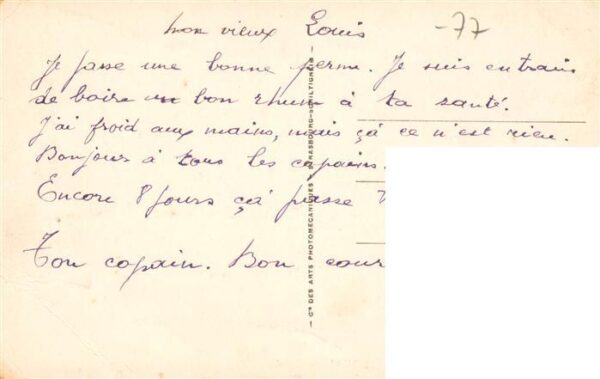 mon vieux Louis
-77
Je passe une bonne perm. Je suis en train
de boire un bon rhum à ta santé.
J'ai froid aux mains, mais çà ce n'est rien.
Bonjour à tous les copains.
Encore 8 jours çà passe
Ton copain. Bon cour
Cie DES ARTS PHOTOMECANIQUES - STRASBOURG-SCHILTIGHEIM